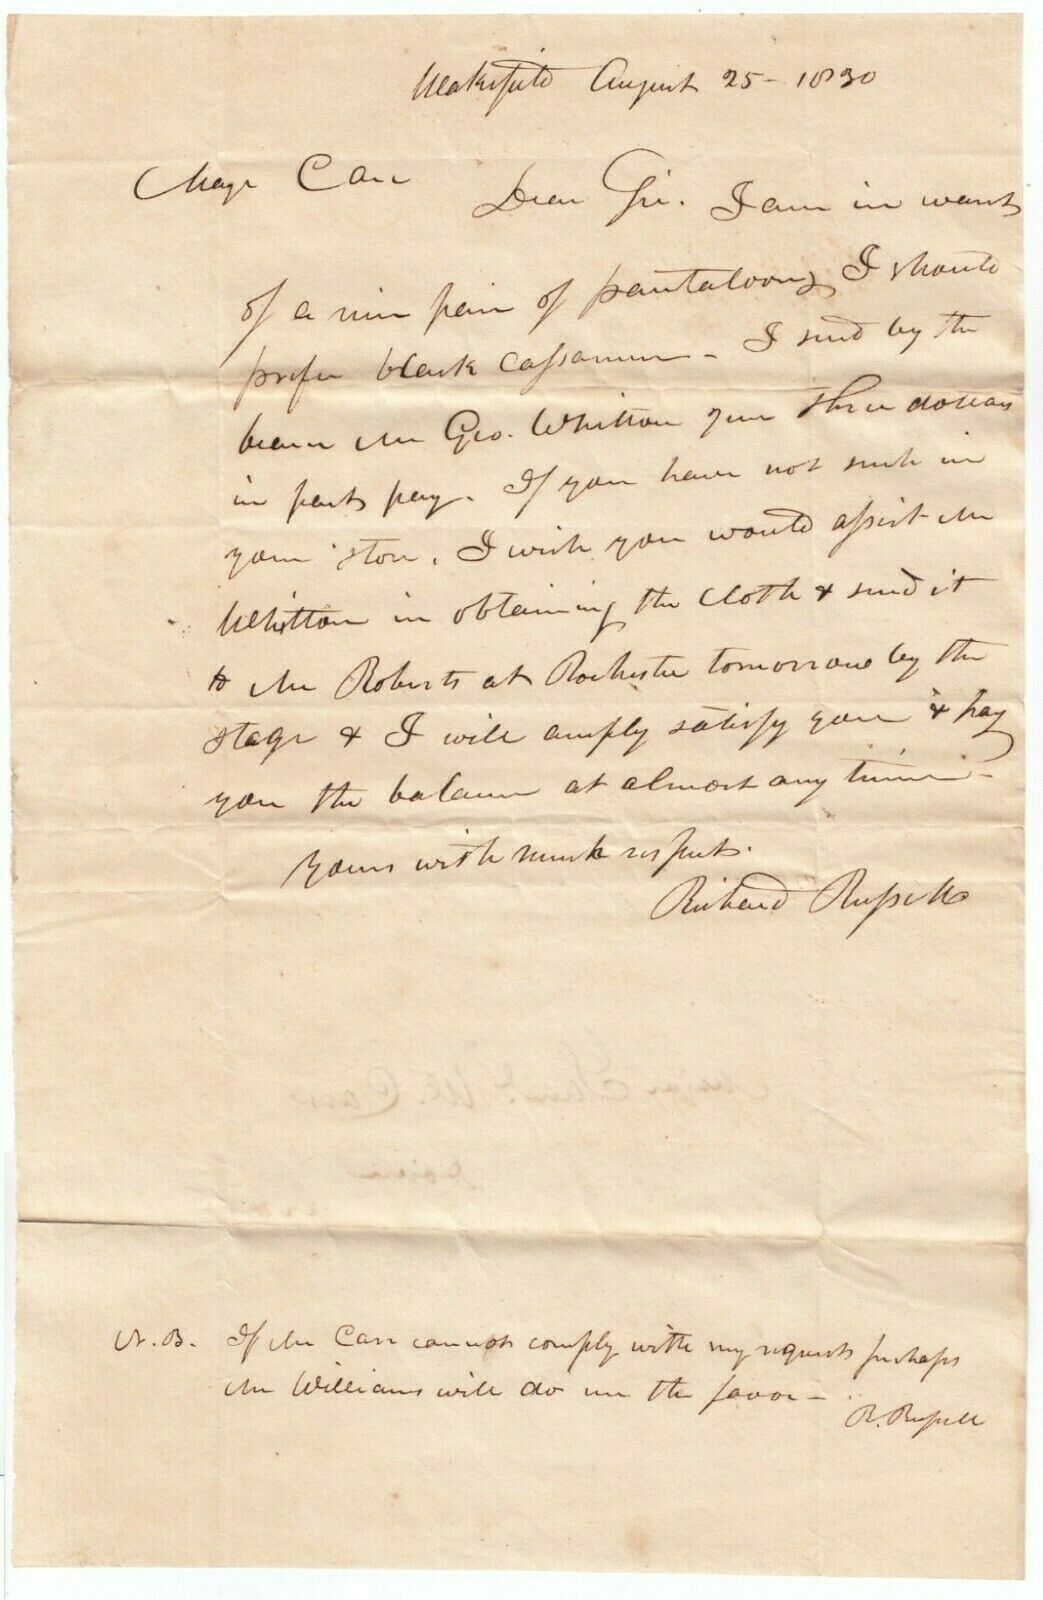 Wakefield August 25 - 1830
Majr Carr
Dear Sir. I am in want
of a new pair of pantaloons, I should
prefer black cassamere - I send by the
bearer Mr Geo. Whitton your three dollars
in part pay. If you have not such in
your store, I wish you would assist Mr
Whitton in obtaining the cloth & send it
to Mr Roberts at Rochester tomorrow by the
stage & I will amply satisfy you & pay
you the balance at almost any time -
Yours with much respect.
Richard Russell
N.B. If Mr Carr cannot comply with my request perhaps
Mr Williams will do me the favor -
R. Russell